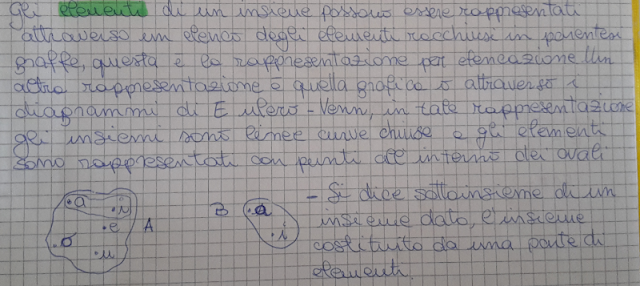 gli elementi di un insieme possono essere rappresentati
attraverso un elenco degli elementi racchiusi in parentesi
graffe, questa è la rappresentazione per elencazione. Un
altra rappresentazione è quella grafica o attraverso i
diagrammi di Eulero-Venn, in tale rappresentazione
gli insiemi sono linee curve chiuse e gli elementi
sono rappresentati con punti all'interno dei ovali
.a .i .e .o .u A
B .a .i
- Si dice sottoinsieme di un
insieme dato, l'insieme
costituito da una parte di
elementi.